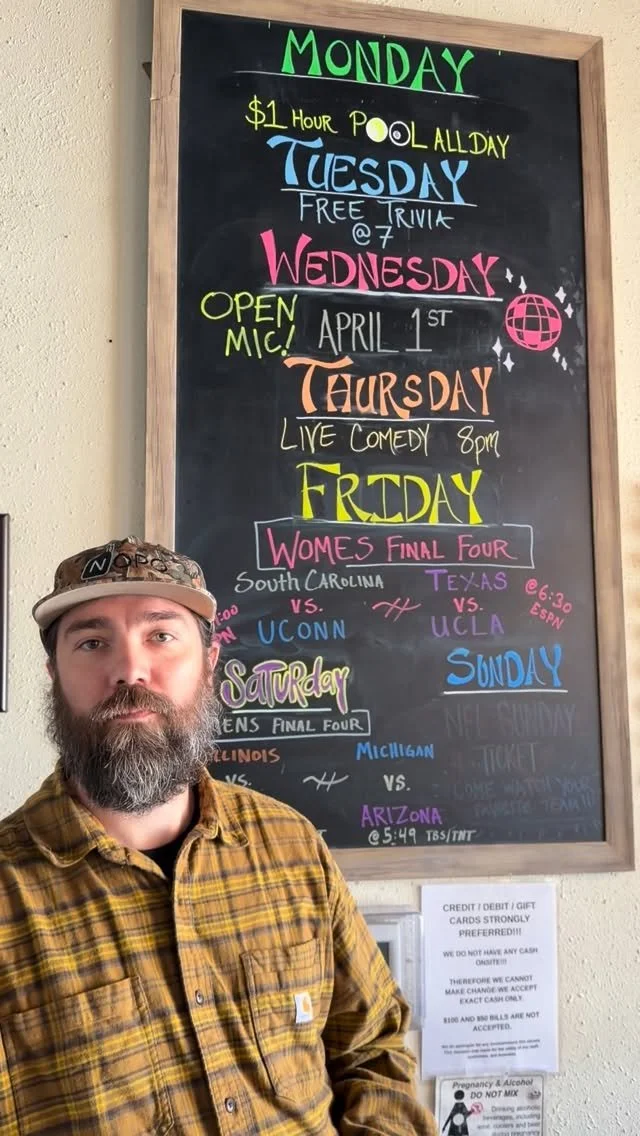 MONDAY
$1 HOUR POOL ALL DAY
TUESDAY
FREE TRIVIA
@7
WEDNESDAY
OPEN
MIC!
APRIL 1ST
THURSDAY
LIVE COMEDY 8pm
FRIDAY
WOMES FINAL FOUR
SOUTH CAROLINA
VS.
UCONN
:00
PN
TEXAS
VS.
UCLA
@6:30
ESPN
SATURDAY
ENS FINAL FOUR
LLINOIS
VS.
MICHIGAN
VS.
ARIZONA
@5:49 TBS/TNT
SUNDAY
NFL SUNDAY
TICKET
COME WATCH YOUR
FAVORITE TEAM!!!
NOPO
carhartt
CREDIT / DEBIT / GIFT
CARDS STRONGLY
PREFERRED!!!
WE DO NOT HAVE ANY CASH
ONSITE!!!
THEREFORE WE CANNOT
MAKE CHANGE-WE ACCEPT
EXACT CASH ONLY.
$100 AND $50 BILLS ARE NOT
ACCEPTED.
Pregnancy & Alcohol
DO NOT MIX
Drinking alcoholic
beverages, including
wine, coolers and beer
during pregnancy